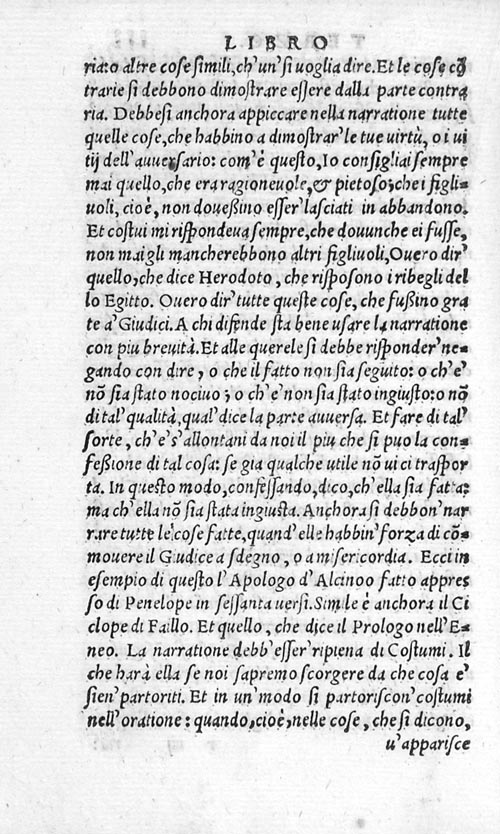 LIBRO
ria:o altre cose simili,ch'un'si uoglia dire.Et le cose cõ
trarie si debbono dimostrare essere dalla parte contra
ria. Debbesi anchora appiccare nella narratione tutte
quelle cose,che habbino a dimostrar'le tue uirtù, o i ui
tij dell'auuersario: com'è questo,Io consigliai sempre
mai quello,che era ragioneuole,& pietoso;che i figli-
uoli, cioè, non douessino esser'lasciati in abbandono.
Et costui mi rispondeua sempre,che douunche ei fusse,
non mai gli mancherebbono altri figliuoli,Ouero dir'
quello,che dice Herodoto, che risposono i ribegli del
lo Egitto. Ouero dir'tutte queste cose, che fussino gra
te a'Giudici.A chi difende sta bene usare la narratione
con piu breuità.Et alle querele si debbe risponder'ne-
gando con dire, o che il fatto non sia seguito: o ch'e'
nõ sia stato nociuo; o ch'e'non sia stato ingiusto:o nõ
di tal'qualità,qual'dice la parte auuersa. Et fare di tal'
sorte, ch'e's'allontani da noi il piu che si puo la con-
fessione di tal cosa: se gia qualche utile nõ ui ci traspor
ta. In questo modo,confessando,dico,ch'ella sia fatta:
ma ch'ella nõ sia stata ingiusta.Anchora si debbon'nar
rare tutte le cose fatte,quand'elle habbin'forza di cõ-
mouere il Giudice a sdegno, o a misericordia. Ecci in
esempio di questo l'Apologo d'Alcinoo fatto appres
so di Penelope in sessanta uersi.Simile è anchora il Ci
clope di Faillo. Et quello, che dice il Prologo nell'E-
neo. La narratione debb'esser'ripiena di Costumi. Il
che harà ella se noi sapremo scorgere da che cosa e'
sien'partoriti. Et in un'modo si partoriscon'costumi
nell'oratione: quando,cioè,nelle cose, che si dicono,
u'apparisce